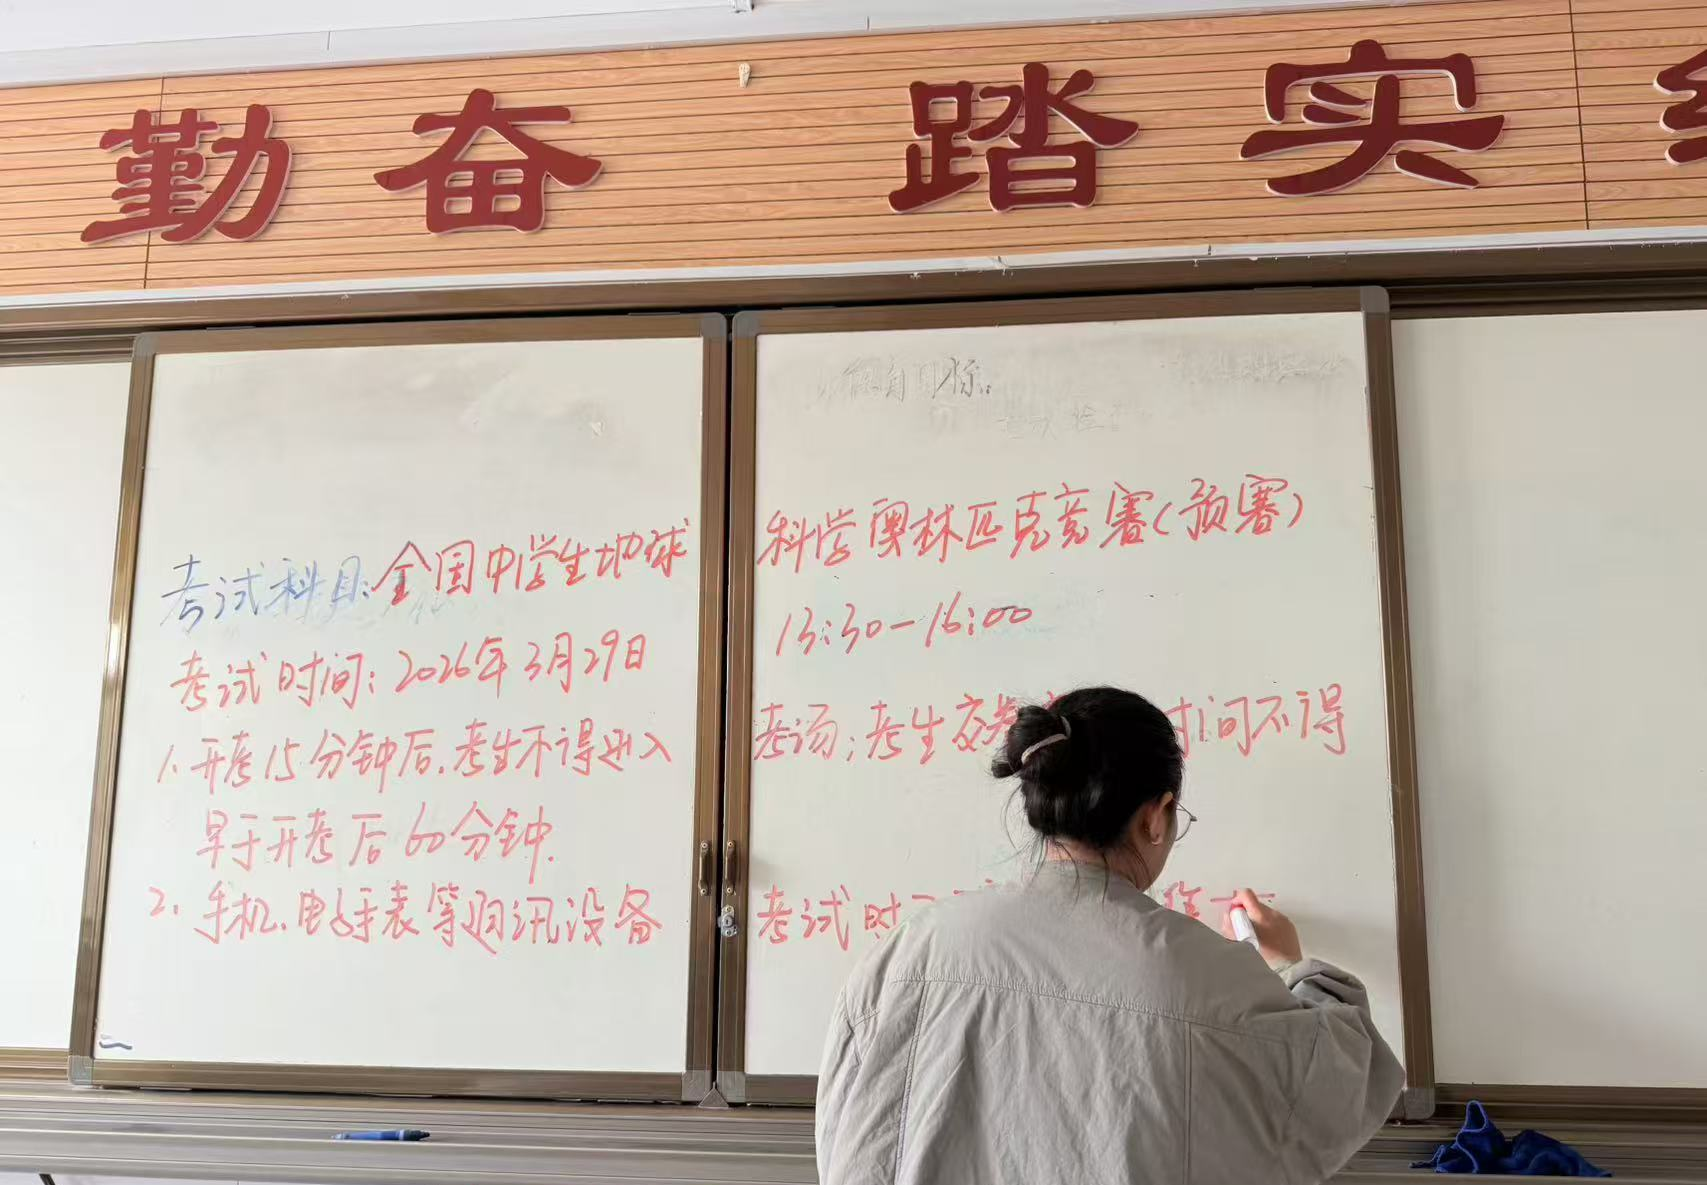 勤奋 踏实
考试科目:全国中学生地球科学奥林匹克竞赛(预赛)
考试时间:2026年3月29日 13:30-16:00
1.开考15分钟后,考生不得进入考场;考生交卷 时间不得
早于开考后60分钟.
2.手机、电子手表等通讯设备考试时
目标: